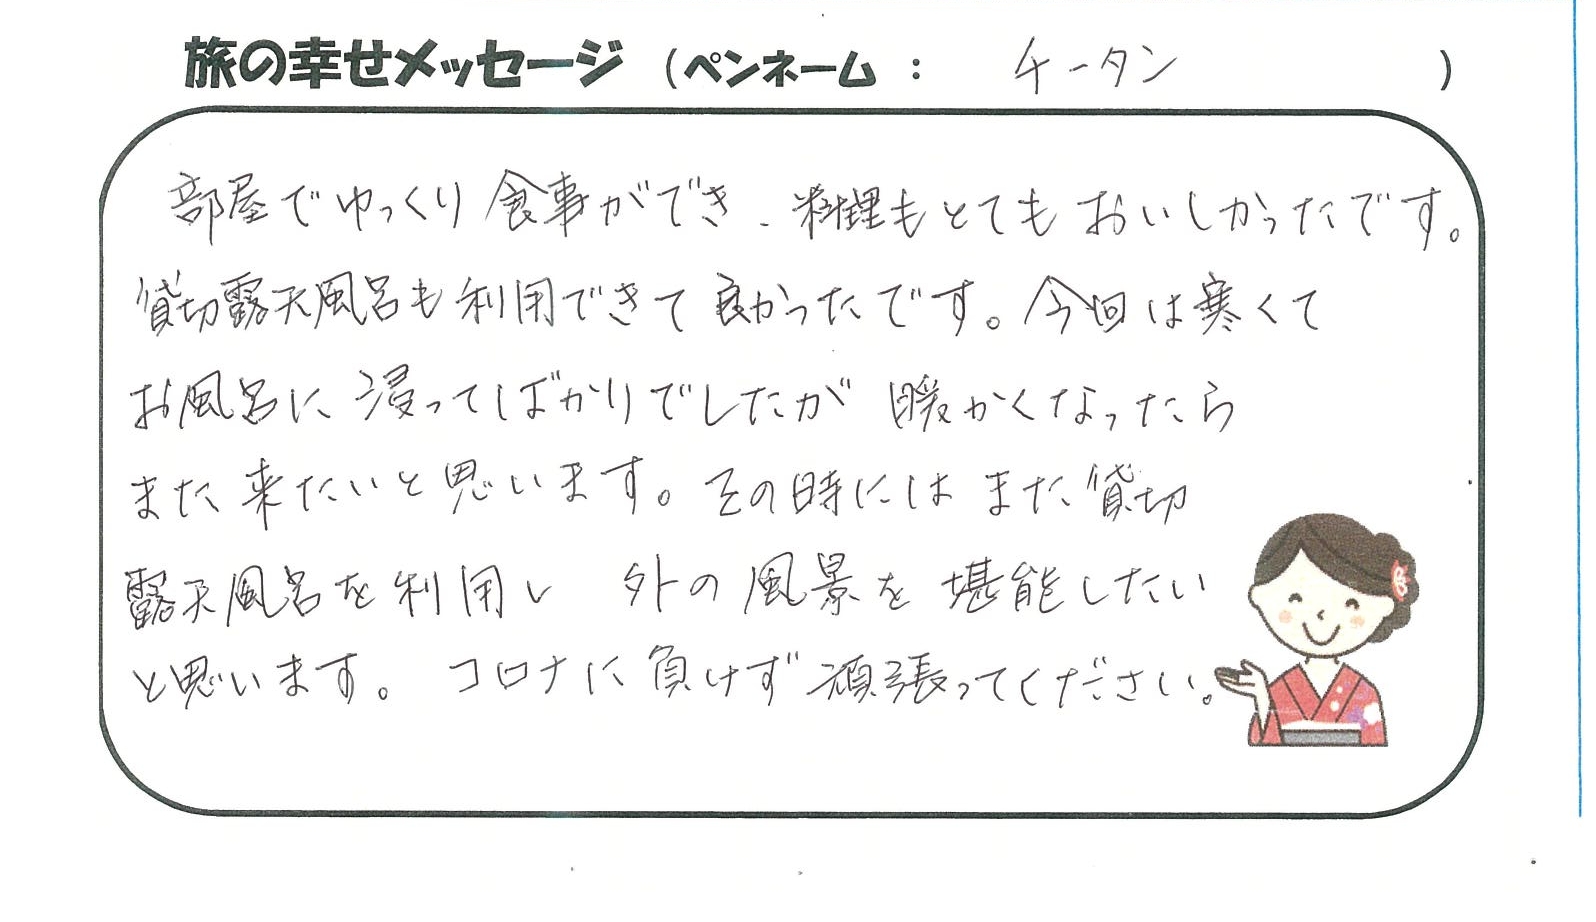 旅の幸せメッセージ (ペンネーム : チータン )
部屋でゆっくり食事ができ、料理もとてもおいしかったです。
貸切露天風呂も利用できて良かったです。今回は寒くて
お風呂に浸ってばかりでしたが 暖かくなったら
また来たいと思います。その時にはまた貸切
露天風呂を利用し 外の風景を堪能したい
と思います。 コロナに負けず頑張ってください。